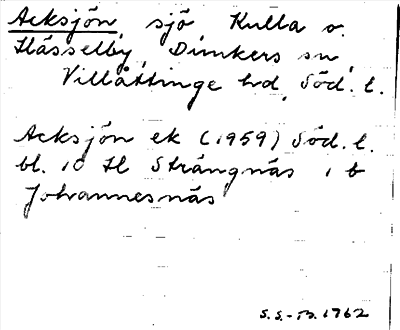 Acksjön, sjö Kulla o.
Hässelby, Dunkers sn,
Villåttinge hd, Söd. l.
Acksjön ek (1959) Söd. l.
bl. 10 H Strängnäs 1 b
Johannesnäs
S.S.-B. 1962